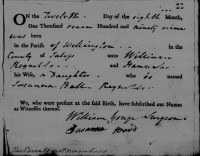 ON the Twelfth Day of the eighth Month,
One Thousand seven Hundred and Ninety nine
was born
in the Parish of Wellington In the
County of Salop unto William
Reynolds and Hannah
his Wife, a Daughter who is named
Susanna Ball Reynolds.
We, who were present at the said Birth, have subscribed our Names
as Witnesses thereof.
William Surgeon
Susanna Wood